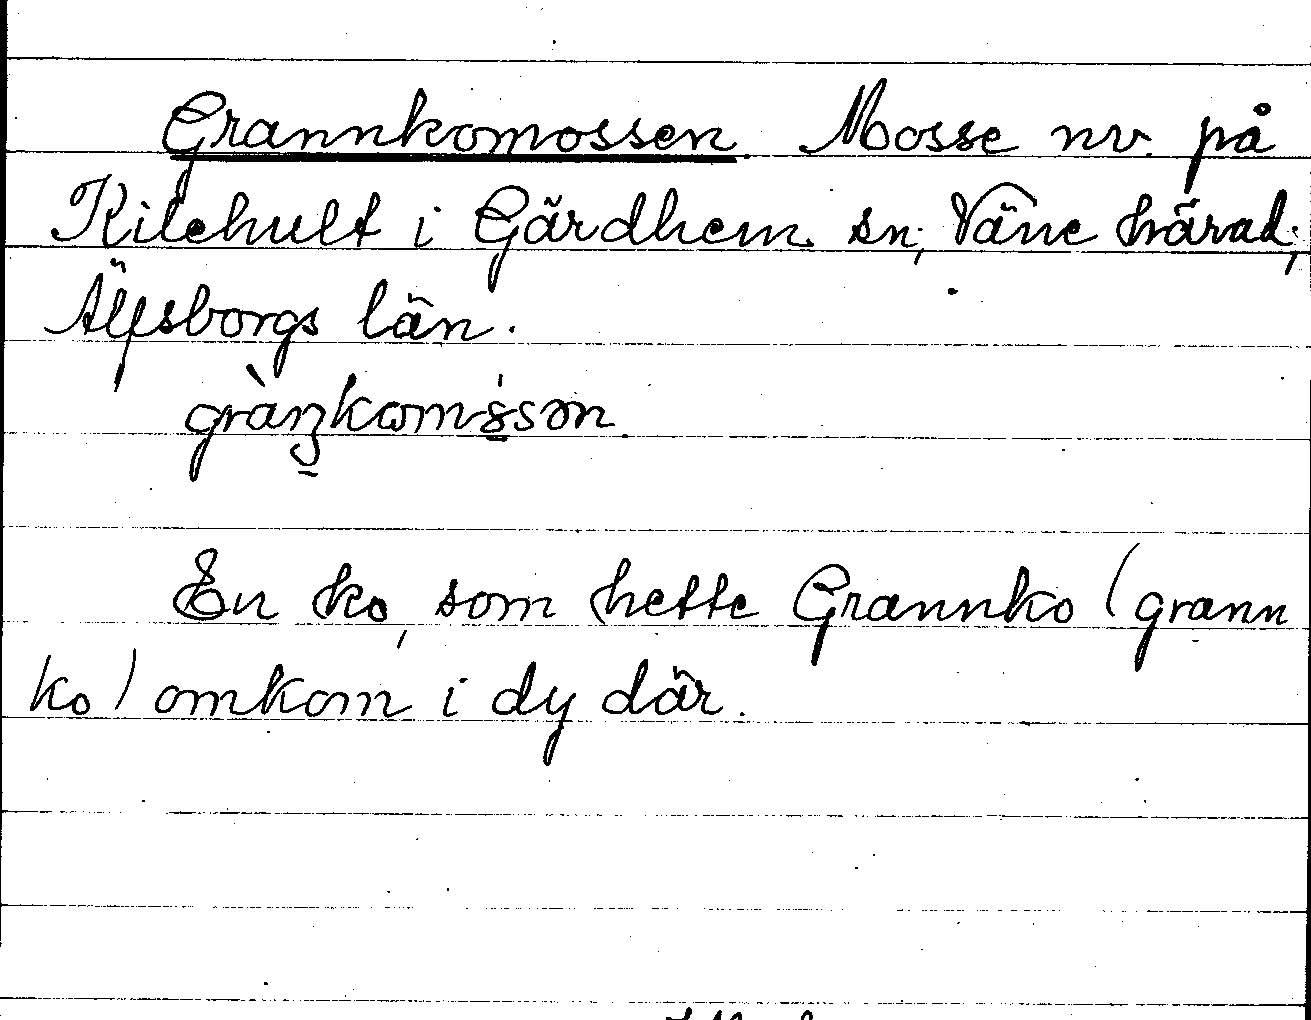 Grannkomossen. Mosse nv. på
Kilehult i Gärdhem sn, Väne härad,
Älfsborgs län.

En ko, som hette Grannko (grann
ko) omkom i dy där.